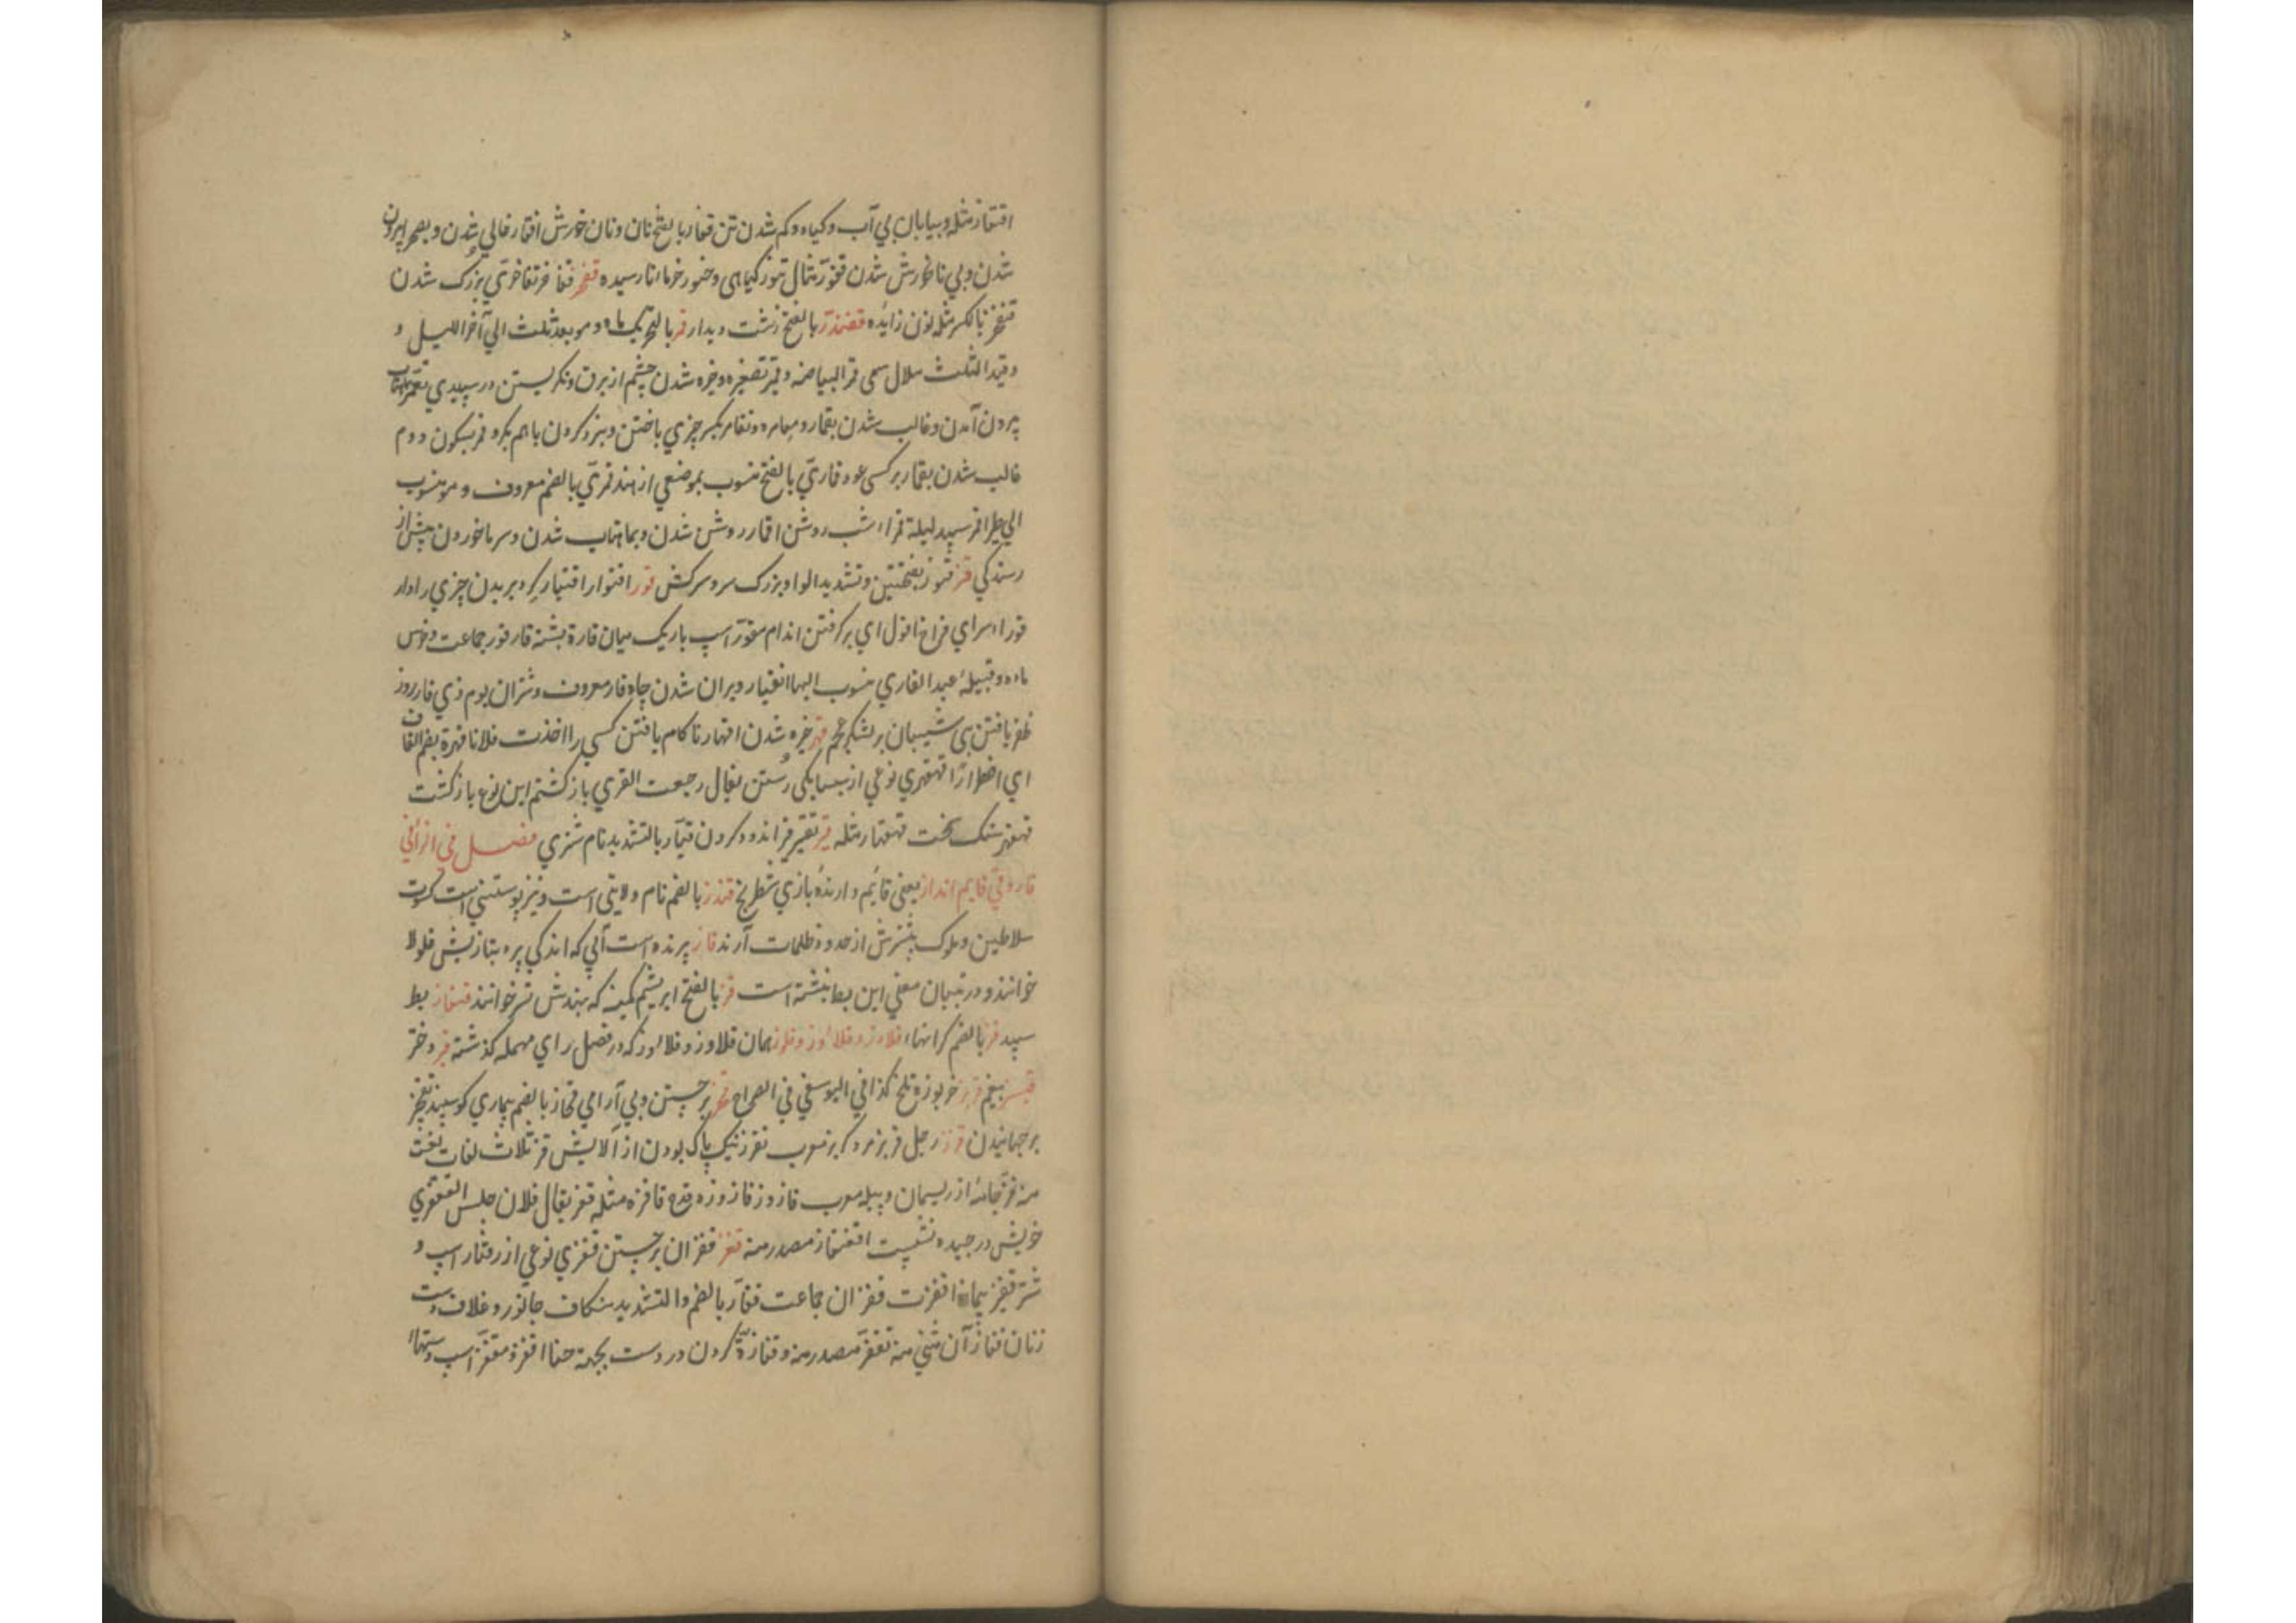 اقفار مثله و بیابان بی آب و کیاه و کم شدن تن قفار بالفتح نان و نان خورش اقفار خالی شدن و بصحرا بیرون
شدن و بی نان خورش شدن قفور مثال تنور کیاهی و خنور خرما نارسیده قفخر قفاخر قفاخری بزرک شدن
قنفخر بالکسر مثله نون زایده قفندر بالفتح زشت دیدار قمر بالتحریک ماه و هو بعد ثلث الی آخر اللیل و
و قید الثلث هلال سمی قمر البیاضه و قمیر تصغیره و خیره شدن چشم از برف و نکریستن در سپیدی تقمر بماهتاب
بیرون آمدن و غالب شدن بقمار و مقامره و تقامر بکسر چیزی باختن و نبرد کردن باهم بکرو قمر بسکون دوم
غالب شدن بقمار بر کسی عود قماری بالفتح منسوب بموضعی از هند قمری بالضم معروف و هو منسوب
الی طیر اقمر سپید لیلة قمراء شب روشن اقمار روشن شدن و بماهتاب شدن و سرما خوردن پیش از
رسیدکی قنر قنور بفتحتین و تشدید الواو بزرک سر و سرکش قور اقورار اقتیار کرد بریدن چیزی را دار
قوراء سرای فراخ اقول ای بر کرفتن اندام مقور اسپ باریک میان قارة پشته قار قور جماعت و خرس
ماده و قبیلهٔ عبد القاری منسوب الیها انقیار ویران شدن چاه قار معروف و شتران یوم ذی قار روز
ظفر یافتن بنی شیبان بر لشکر عجم قهر خیره شدن اقهار ناکام یافتن کسی را اخذت فلانا قهرة بضم القاف
ای اضطرارا قهقری نوعی از رستن یقال رجعت القهری باز کشتم این نوع باز کشت
قهقر سنک سخت قهقار مثله قیر تقییر قیر اندود کردن قیار بالتشدید نام شتری فصل فی الزائی
قارونی قایم انداز یعنی قائم دارندهٔ بازی شطرنج قندز بالضم نام ولایتی است و نیز پوستینی است کسوت
سلاطین و ملوک بیشترش از حدود ظلمات آرند قاز پرنده است آبی که اندکی پره بتازیش فلولا
خوانند و در تبیان معنی این بط نبشته است قز بالفتح ابریشم کمینه که بهندش تسر خوانند قنقاز بط
سپید قز بالضم کرانها قلاوز و قلائوز و قلوز همان قلاوز و قلاوز که در فصل رای مهمله کذشته قیز دختر
قبسز بیغم قربز خربوزه تلخ کذا فی الیوسفی فی الصراح قحز برجستن و بی آرامی قحاز بالضم بیماری کوسپند تقحیز
برجهانیدن قرز رجل قربز مرد کربز معرب تقزز نیک پاک بودن از آلایش قز ثلاث لغات نعت
منه قز جامهٔ از ریسمان و پیله معرب قازوز قازوزه قدح قاقزه مثله قعز یقال فلان جلس القعفزی
خویش درچیده نشست اقعنفاز مصدر منه قفز قفزان برجستن قفزی نوعی از رفتار اسپ و
شتر قفیز پیمانه اقفزت قفزان جماعت قفاز بالضم و التشدید شکاف جانور و غلاف دست
زنان قفازان مثنی منه تقفز مصدر منه و قفازة کردن در دست بجهة حنا اقفز و مقفز اسپ دستها